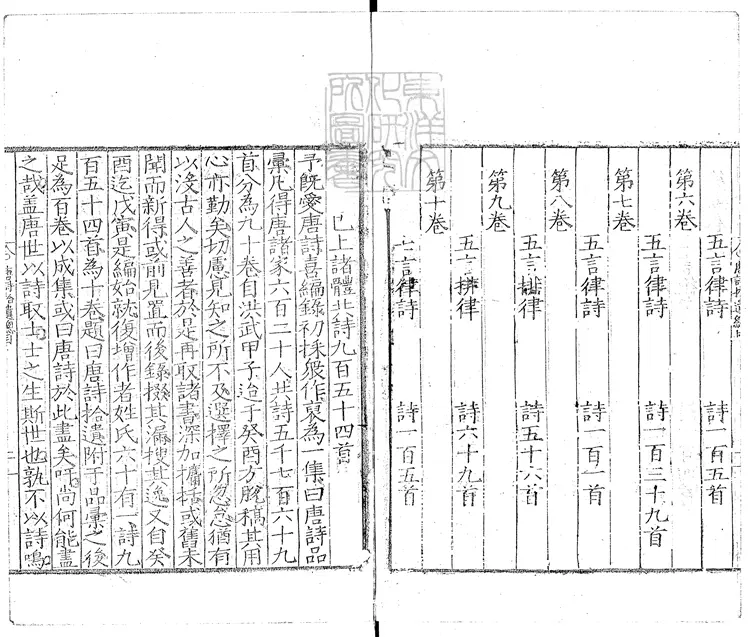 五言律詩 詩一百五首
第六卷
五言律詩 詩一百三十九首
第七卷
五言律詩 詩一百一首
第八卷
五言排律 詩五十六首
第九卷
五言排律 詩六十九首
第十卷
七言律詩 詩一百五首
已上諸體共詩九百五十四首
予旣愛唐詩喜編錄初採衆作裒為一集曰唐詩品
彙凡得唐諸家六百二十人共詩五千七百六十九
首分為九十卷自洪武甲子迨于癸酉方脫稿其用
心亦勤矣切慮見知之所不及選擇之所忽怠猶有
以沒古人之善者於是再取諸書深加擴括或舊未
聞而新得或前見置而後錄掇其漏搜其逸又自癸
酉迄戊寅是編始就復增作者姓氏六十有一詩九
百五十四首為十卷題曰唐詩拾遺附于品彙之後
足為百卷以成集或曰唐詩於此盡矣吁尚何能盡
之哉盖唐世以詩取士士之生斯世也孰不以詩鳴